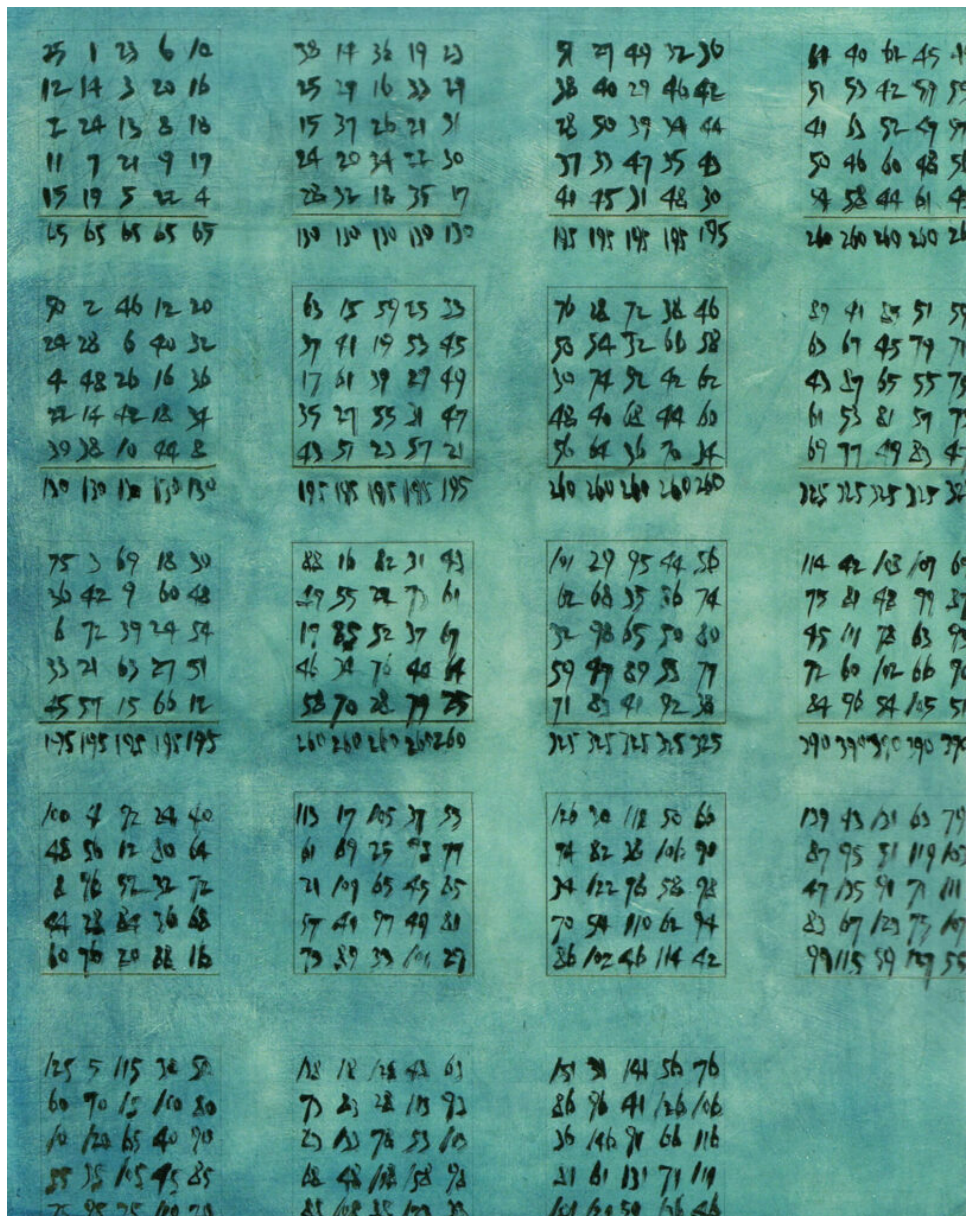 25 1 23 6 10
12 14 3 20 16
2 24 13 8 18
11 7 21 9 17
15 19 5 22 4
65 65 65 65 65
38 14 36 19 23
25 27 16 33 29
15 37 26 21 31
24 20 34 22 30
28 32 18 35 17
130 130 130 130 130
51 27 49 32 36
38 40 29 46 42
28 50 39 34 44
37 33 47 35 43
41 45 31 48 30
195 195 195 195 195
64 40 62 45
51 53 42 59 55
41 63 52 47 57
50 46 60 48 56
54 58 44 61
260 260 260 260
50 2 46 12 20
24 28 6 40 32
4 48 26 16 36
22 14 42 18 34
39 38 10 44 8
130 130 130 130 130
63 15 59 25 33
37 41 19 53 45
17 61 39 29 49
35 27 55 31 47
43 51 23 57 21
195 195 195 195 195
76 28 72 38 46
50 54 32 66 58
30 74 52 42 62
48 40 68 44 60
56 64 36 70 34
260 260 260 260 260
89 41 85 51 59
63 67 45 79 71
43 87 65 55 75
61 53 81 57 73
69 77 49 83 47
325 325 325 325
75 3 69 18 30
36 42 9 60 48
6 72 39 24 54
33 21 63 27 51
45 57 15 66 12
195 195 195 195 195
88 16 82 31 43
49 55 22 73 61
19 85 52 37 67
46 34 76 40 64
58 70 28 79 25
260 260 260 260 260
101 29 95 44 56
62 68 35 86 74
32 98 65 50 80
59 47 89 53 77
71 83 41 92 38
325 325 325 325 325
114 42 108 107 69
75 81 48 99 87
45 111 78 63 93
72 60 102 66 90
84 96 54 105 51
390 390 390 390 390
100 4 92 24 40
48 56 12 80 64
8 96 52 32 72
44 28 84 36 68
60 76 20 88 16
113 17 105 37 53
61 69 25 93 77
21 109 65 45 85
57 41 97 49 81
73 89 33 101 29
126 30 118 50 66
74 82 38 106 90
34 122 78 58 98
70 54 110 62 94
86 102 46 114 42
139 43 131 63 79
87 95 51 119 103
47 135 91 71 111
83 67 123 75 107
99 115 59 127 55
125 5 115 30 50
60 70 15 100 80
10 120 65 40 90
55 35 105 45 85
75 95 25
138 18 128 43 63
73 83 28 113 93
23 133 78 53 103
68 48 118 58 98
151 31 141 56 76
86 96 41 126 106
36 146 91 66 116
81 61 131 71 111